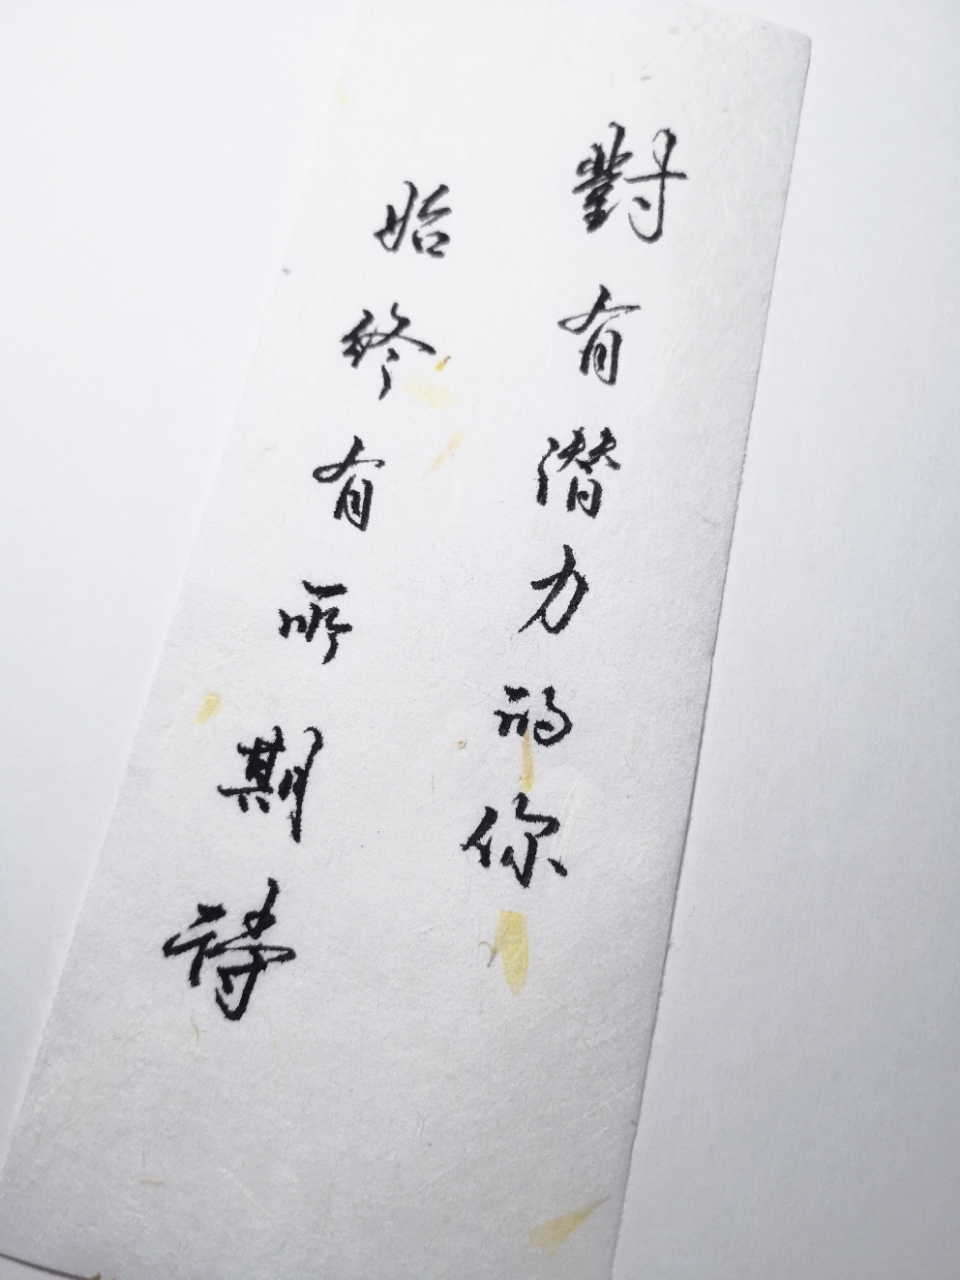 對有潜力的你
始終有所期待